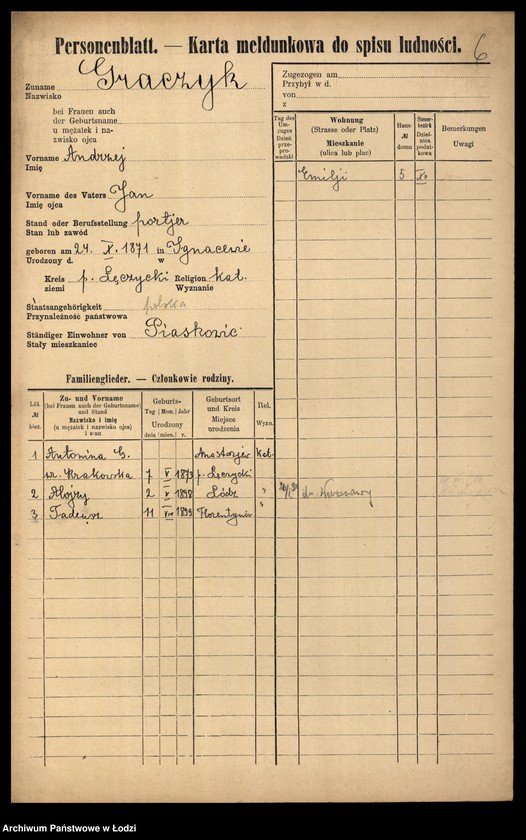 Personenblatt. — Karta meldunkowa do spisu ludności.
6
Zuname Graczyk
Nazwisko
bei Frauen auch
der Geburtsname
u mężatek i na-
zwisko ojca
Vorname Andrzej
Imię
Vorname des Vaters Jan
Imię ojca
Stand oder Berufsstellung portjer
Stan lub zawód
geboren am 24. X. 1871 in Ignacewie
Urodzony d. w
Kreis p. Łęczycki Religion kat.
ziemi Wyznanie
Staatsangehörigkeit polska
Przynależność państwowa
Ständiger Einwohner von Piaskowic
Stały mieszkaniec
Zugezogen am
Przybył w d.
von
z
Tag des Um-zuges Dzień prze-prowadzki
Wohnung (Strasse oder Platz) Mieszkanie (ulica lub plac)
Haus- № domu
Steuer-bezirk Dziel-nica podat-kowa
Bemerkungen Uwagi
Emilji 5 XV
Familienglieder. — Członkowie rodziny.
Lfd. № bież.
Zu- und Vorname (bei Frauen auch der Geburtsname) und Stand Nazwisko i imię (u mężatek i nazwisko ojca) i stan
Geburts- Tag Mon. Jahr Urodzony dnia mies. r.
Geburtsort und Kreis Miejsce urodzenia
Rel. Wyzn.
1 Antonina G. Kat.
Krakowska 7 V 1873 p. Łęczycki
2 Alojzy 2 V 1898 Łódź "
3 Tadeusz 11 1899 Florentynów "
do Warszawy
Archiwum Państwowe w Łodzi